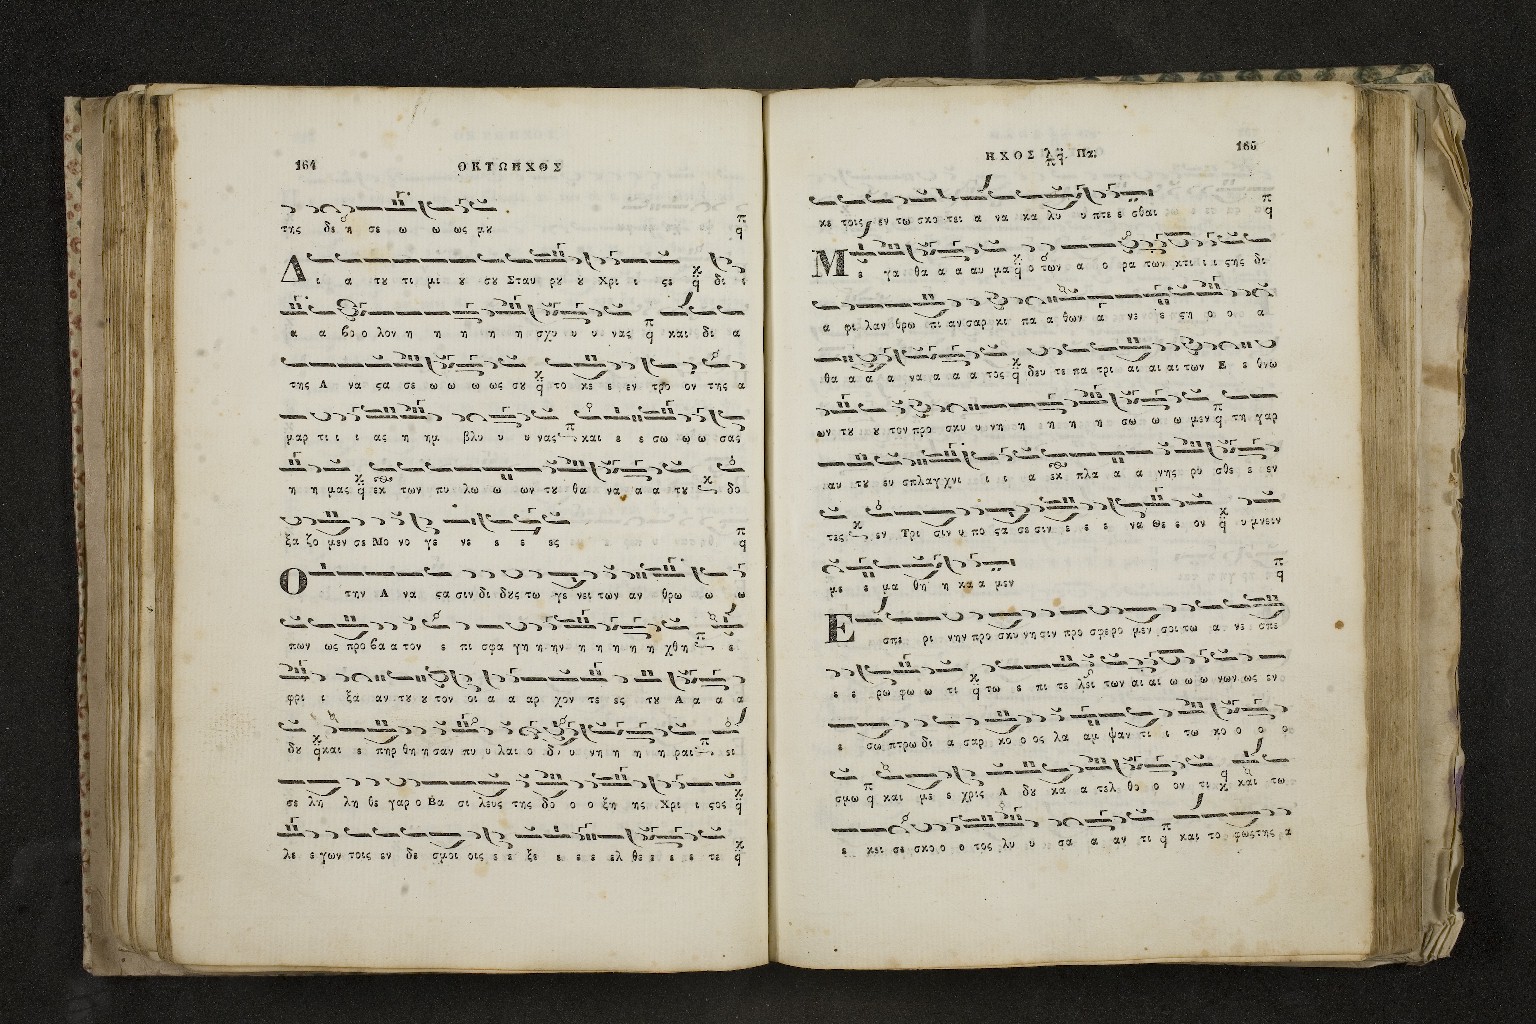 164
ΟΚΤΩΗΧΟΣ
της δε η σε ω ω ως μȣ
Δι α τȣ τι μι ȣ σȣ Σταυ ρȣ ȣ Χρι ι ςε δι ι
α α βο ο λον η η η η η η σχυ υ υ νας και δι α
της Α να ςα σε ω ω ω ως σȣ το κε ε εν τρο ον της α
μαρ τι ι ι ας η ημ βλυ υ υ νας και ε ε σω ω ω σας
η η μας εκ των πυ λω ω ων τȣ θα να α α τȣ δο
ξα ζο μεν σε Μο νο γε νε ε ε ες
Ο την Α να ςα σιν δι δȣς τω γε νει των αν θρω ω ω
πων ως προ βα α τον ε πι σφα γη η ην η η η η η χθη ε
φρι ι ξα αν τȣ ȣ τον οι α α αρ χον τε ες τȣ Α α α α
δȣ και ε πηρ θη η σαν πυ υ λαι ο δυ υ νη η η η ραι ει
σε λη λη θε γαρ ο Βα σι λευς της δο ο ο ξη ης Χρι ι ςος
λε ε γων τοις εν δε σμοι οις ε ε ξε ε ε ε ελ θε ε ε ε τε
165
ΗΧΟΣ Πα
κε τοις εν τω σκο τει α να κα λυ υ πτε ε σθαι
Με γα θα α α αυ μα ο των α ο ρα των κτι ι ι ςης δι
α φι λαν θρω πι αν σαρ κι πα α θων α νε ε ςη ο ο α
θα α α α να α α α τος δευ τε πα τρι αι αι αι των Ε ε θνω
ων τȣ ȣ τον προ σκυ υ νη η η η η σω ω ω μεν τη γαρ
αυ τȣ ευ σπλαγ χνι ι ι α εκ πλα α α νης ρυ σθε ε εν
τες εν Τρι σιν υ πο ςα σε σιν ε ε ε να Θε ε ον υ μνειν
με ε μα θη η κα α μεν
Ε σπε ρι νην προ σκυ νη σιν προ σφερο μεν σοι τω α νε σπε
ε ε ρω φω ω τι τω ε πι τε λει των αι αι ω ω ω νων ως εν
ε σω πτρω δι α σαρ κο ο ος λα αμ ψαν τι ι τω κο ο ο ο
σμω και με ε χρις Α δȣ κα α τελ θο ο ον τι και τω
ε κει σε σκο ο ο τος λυ υ σα α αν τι και το φως της α